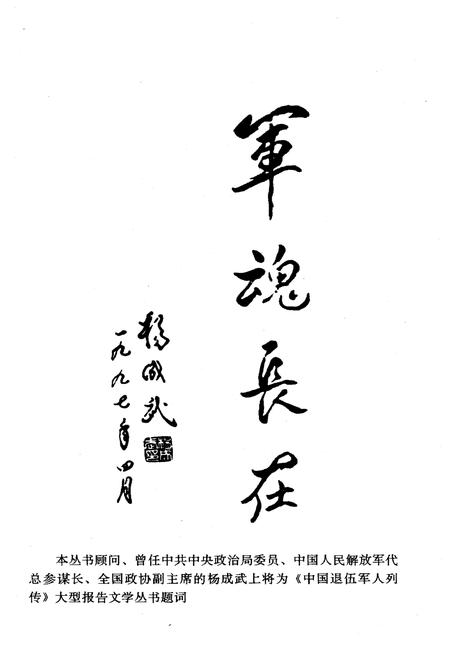 軍魂長在
楊成武
一九九七年四月
本丛书顾问、曾任中共中央政治局委员、中国人民解放军代
总参谋长、全国政协副主席的杨成武上将为《中国退伍军人列
传》大型报告文学丛书题词